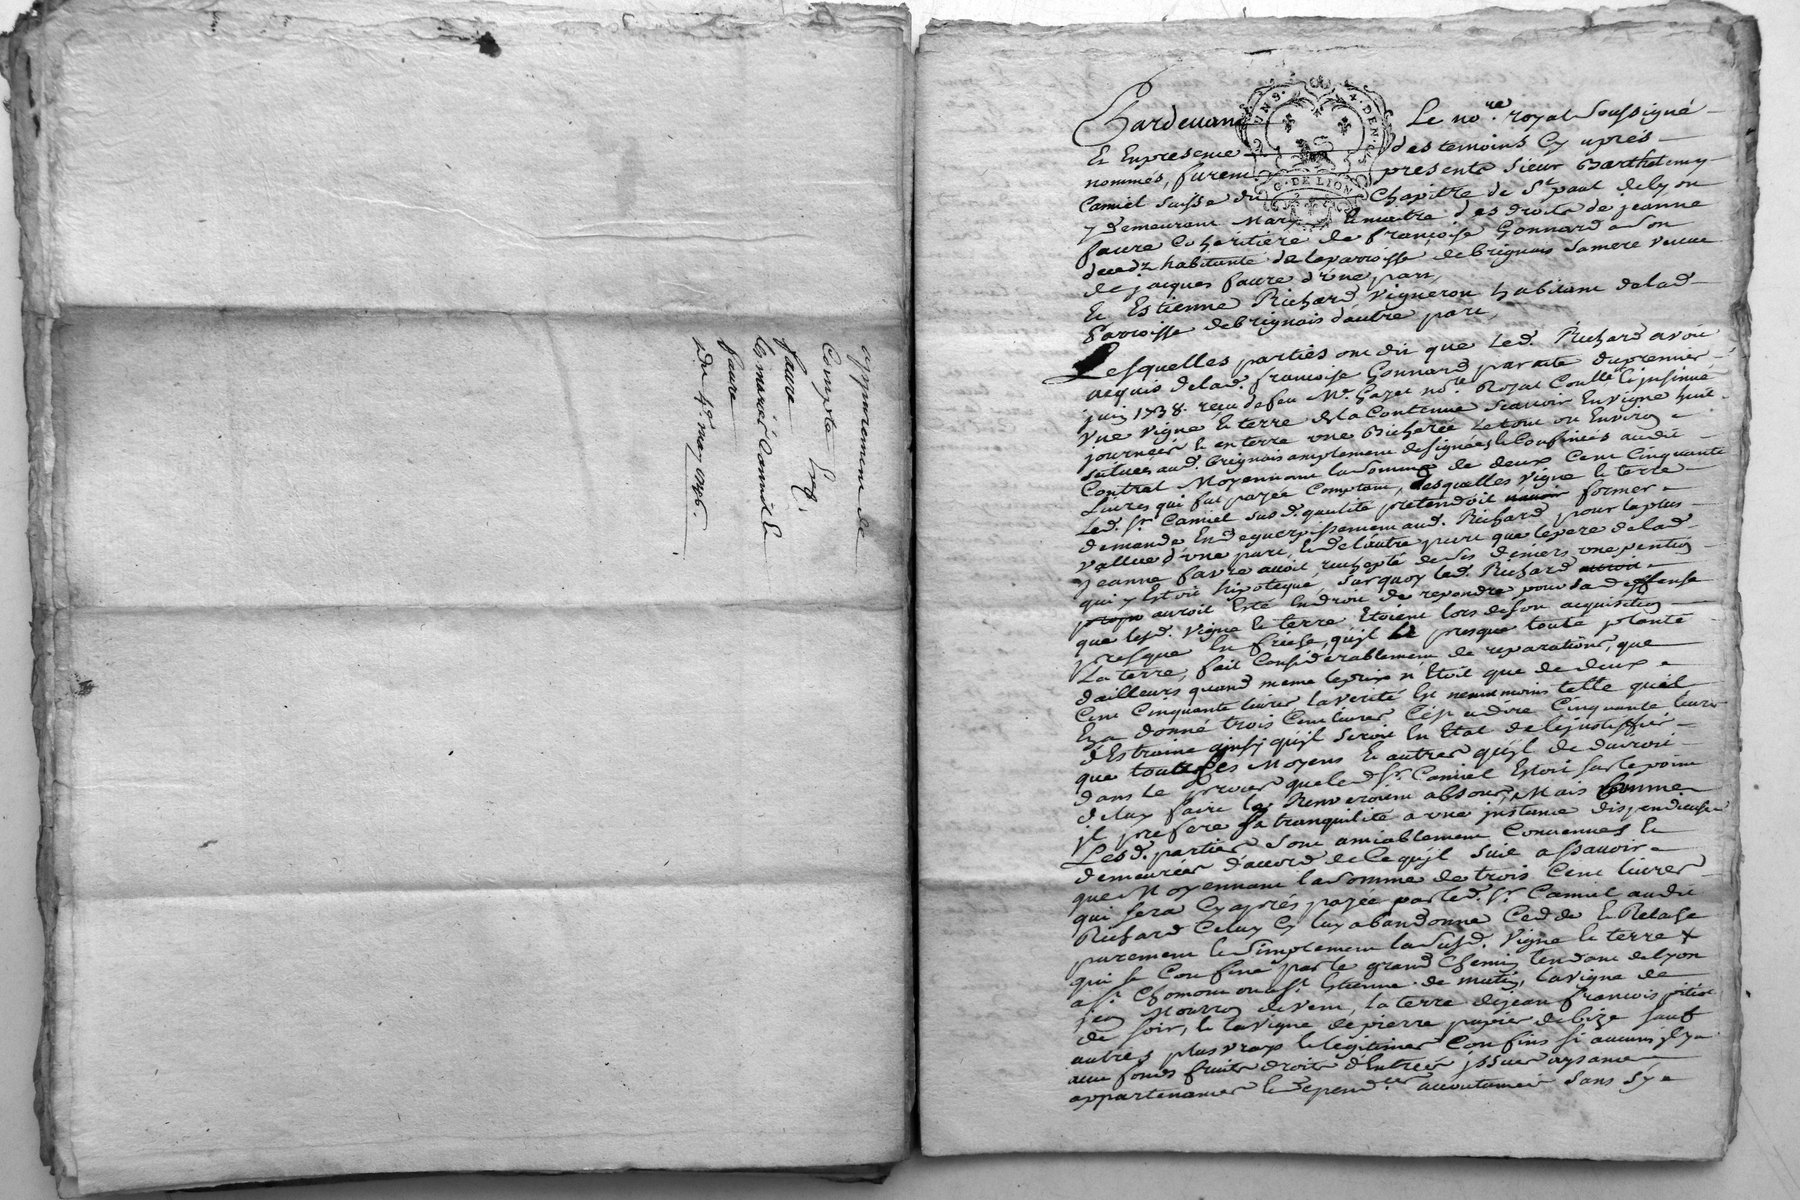 appurement de
Compte
faure
les mariés Camiel &
faure
Du 4e. may 1746.
UNS. 4. DEN.
G. DE LION
Pardevant Le nore. royal soussigné
Et En presence des temoins Cy aprés
nommés, furent presents sieur Barthelemy
Camiel suisse du Chapitre de St. paul de lyon
y demeurant Mary & maitre des droits de jeanne
faure Coheritiere de françoise Gonnard a son
deced habitante de la parroisse de brignais sa mere veuve
de jacques faure d'une part,
Et Estienne Richard Vigneron habitant de lad.
Parroisse de brignais d'autre part,
Lesquelles parties ont dit que Led. Richard avoit
acquis de lad. françoise Gonnard par acte du premier
juin 1738. reçu de feu Me. Gazet nore. Royal Con.lle & insinué
une vigne & terre de la Contenue sçavoir En vigne huit
journées & en terre une Bicherée Le tout ou Environ
situées aud. brignais amplement designées & Confinées audit
Contrat Moyennant la somme de deux Cent Cinquante
Livres qui fut payée Comptant, desquelles vigne & terre
Led. Sr. Camiel sus d. qualité pretendoit former
demande En deguerpissement aud. Richard pour la plus
vallue d'une part, & de l'autre part que le pere de lad.
jeanne favre avoit rachepté de ses deniers une pention
qui y Estoit hipotequé, sur quoy led. Richard
auroit Esté En droit de repondre pour sa deffense
que lesd. vigne & terre Etoient lors de son acquisition
presque En friche, qu'il a presque toute planté
La terre, fait Considerablement de reparations, que
d'ailleurs quand meme le prix n'Etoit que de deux
Cent Cinquante livres la verité Est neantmoins telle qu'il
En a donné trois Cent livres C'est a dire Cinquante livres
d'Estraine ainsy qu'il seroit En Etat de le justiffier
que toutes Ces Moyens & autres qu'il de duiroit
dans le procés que le d. Sr. Camiel Estoit sur le point
de luy faire le Renveroient absous, Mais Comme
il prefere sa tranquilité a une instance dispendieuse
Lesd. parties sont amiablement Convenues &
demeurées d'accord de Ce qu'il suit a sçavoir
que Moyennant la somme de trois Cent livres
qui sera Cy aprés payée par led. Sr. Camiel audit
Richard Celuy Cy luy abandonne Cedde & Relache
purement & simplement la susd. vigne & terre
qui se Confine par le grand Chemin tendant de lyon
a St. Chomont ou a St. Estienne de matin, la vigne de
jean Mourron de vent, la terre de jean françois
de soir, & la vigne de pierre papier de bize sauf
autres plus vrays & legitimes Confins si aucuns il y a
avec fonds fruits droits d'Entrées issues aysances
appartenances & dependces. accoutumés sans s'y